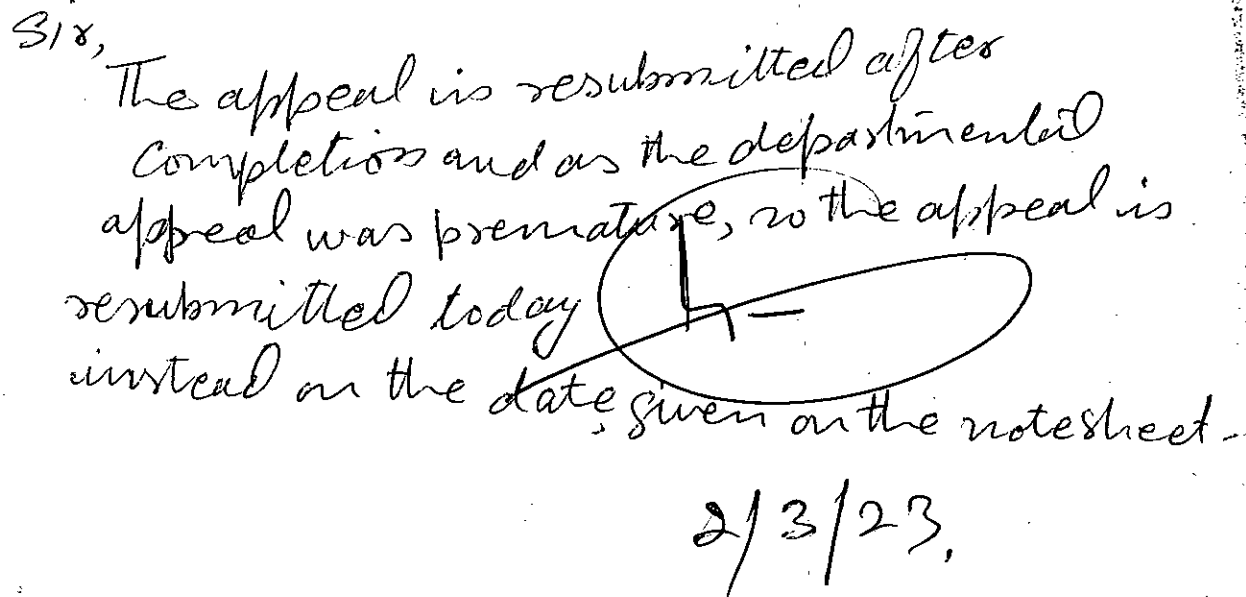 Sir,
The appeal is resubmitted after
Completion and as the departmental
appeal was premature, so the appeal is
resubmitted today
instead on the date, given on the notesheet.
2/3/23.